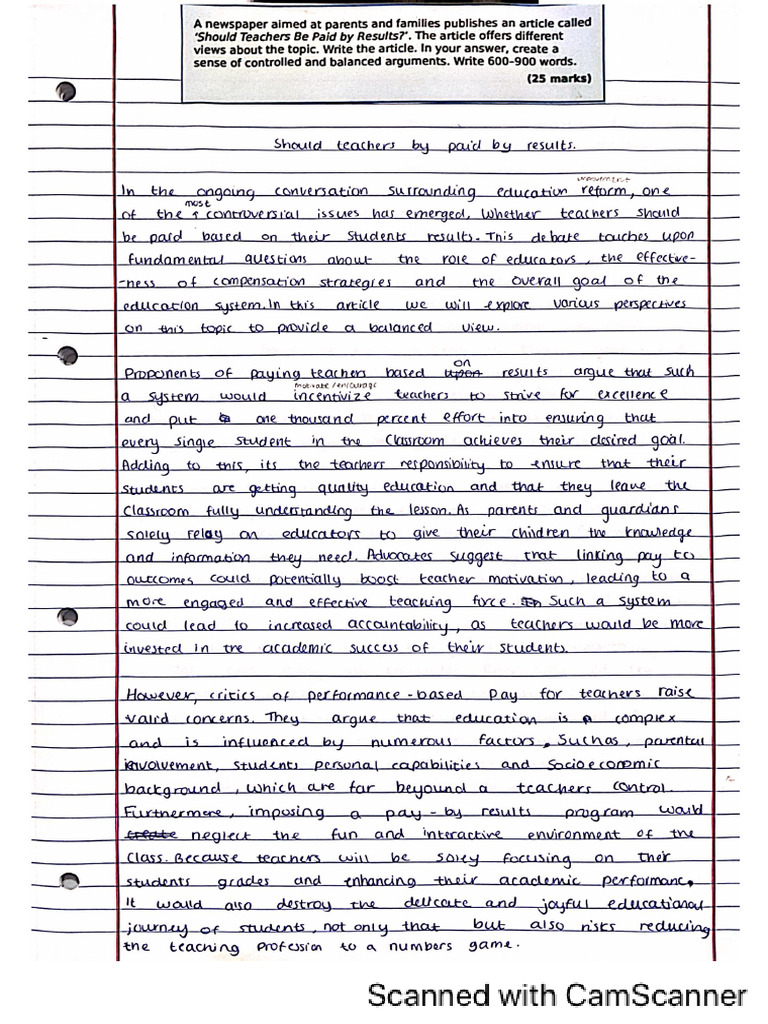 A newspaper aimed at parents and families publishes an article called
'Should Teachers Be Paid by Results?'. The article offers different
views about the topic. Write the article. In your answer, create a
sense of controlled and balanced arguments. Write 600-900 words.
(25 marks)
Should teachers by paid by results.
improvement
In the ongoing conversation surrounding education reform, one
most
of the ↑ controversial issues has emerged, whether teachers should
be paid based on their students results. This debate touches upon
fundamental questions about the role of educators, the effective-
-ness of compensation strategies and the overall goal of the
education system. In this article we will explore various perspectives
on this topic to provide a balanced view.
on
Proponents of paying teachers based upon results argue that such
motivate/encourage
a system would incentivize teachers to strive for excellence
and put one thousand percent effort into ensuring that
every single student in the classroom achieves their desired goal.
Adding to this, its the teachers responsibility to ensure that their
students are getting quality education and that they leave the
classroom fully understanding the lesson. As parents and guardians
solely relay on educators to give their children the knowledge
and information they need. Advocates suggest that linking pay to
outcomes could potentially boost teacher motivation, leading to a
more engaged and effective teaching force. Such a system
could lead to increased accountability, as teachers would be more
invested in the academic succes of their students.
However, critics of performance-based pay for teachers raise
valid concerns. They argue that education is a complex
and is influenced by numerous factors, Suchas, parental
involvement, students personal capabilities and socioeconomic
background, which are far beyound a teachers control.
Furthermore, imposing a pay-by results program would
create neglect the fun and interactive environment of the
class. Because teachers will be soley focusing on their
students grades and enhancing their academic performanc,
It would also destroy the delicate and joyful educational
journey of students, not only that but also risks reducing
the teaching profession to a numbers game.
Scanned with CamScanner